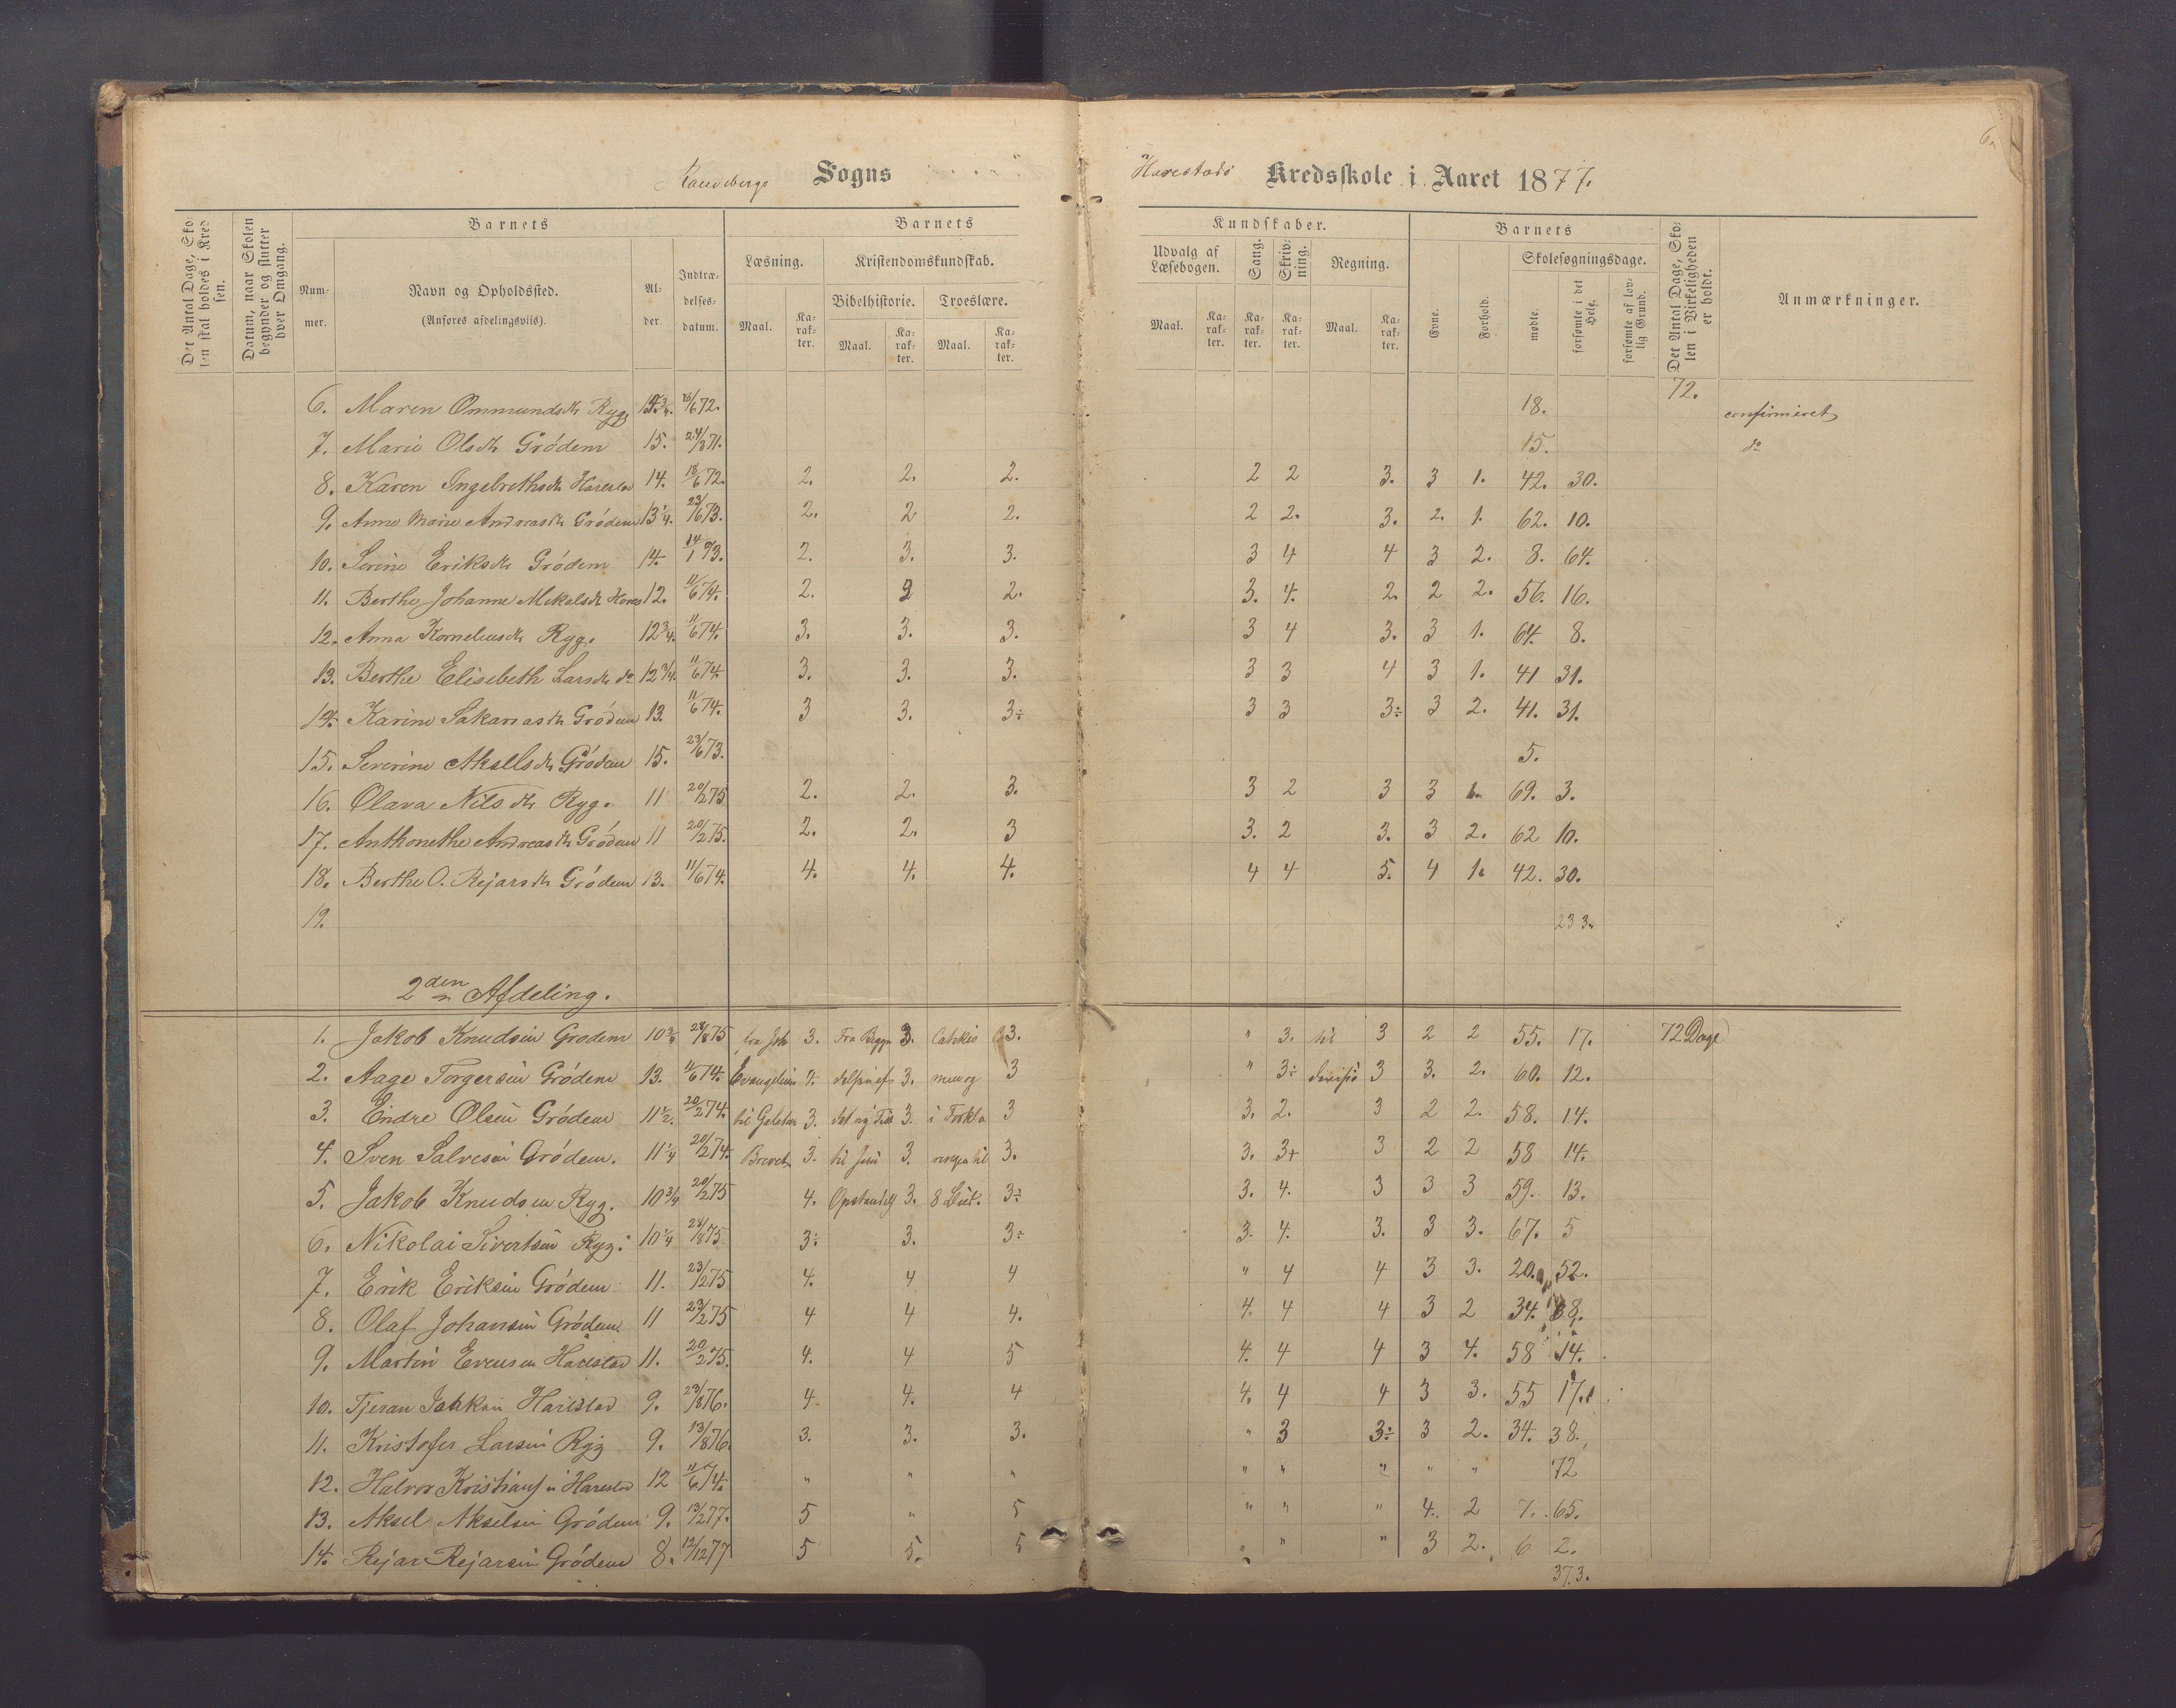 6.
Randebergs Sogns
Harestads Kredsskole i Aaret 1877.
Det Antal Dage, Skolen skal holdes i Kredsen.
Datum, naar Skolen begynder og slutter hver Omgang.
Barnets Barnets Kundskaber. Barnets
Nummer. Navn og Opholdssted. (Anføres afdelingsvis). Alder. Indtrædelsesdatum.
Læsning. Kristendomskundskab. Bibelhistorie. Troeslære.
Maal. Karakter. Maal. Karakter. Maal. Karakter.
Udvalg af Læsebogen. Sang. Skrivning. Regning.
Maal. Karakter. Karakter. Karakter. Maal. Karakter.
Evne. Forhold. Skolesøgningsdage. mødte. forsømte i det Hele. forsømte af lovlig Grund.
Det Antal Dage, Skolen i Virkeligheden er holdt.
Anmærkninger.
6. Maren Ommundsdtr Ryg 26/6 72. 18. 72. confirmeret
7. Marie Olsdtr Gródem 15. 24/3 71. 15. do
8. Karen Ingebrethsdtr Harestad 14. 18/6 72. 2. 2. 2. 2 2 3. 3 1. 42. 30.
9. Anne Marie Andreasdtr Gródem 13 1/4. 23/6 73. 2. 2 2. 2 2. 3. 2. 1. 62. 10.
10. Serine Eriksdtr Gródem 14. 14/1 73. 2. 3. 3. 3 4 4 3 2. 8. 64.
11. Berthe Johanne Mikalsdtr Hares 12. 11/6 74. 2. 2 2. 3. 4. 2. 2 2. 56. 16.
12. Anna Korneliusdtr Ryg. 12 3/4. 11/6 74. 3. 3. 3. 3 4 3. 3 1. 64. 8.
13. Berthe Elisebeth Larsdtr do 12 3/4. 11/6 74. 3. 3. 3. 3 3 4 3 1. 41 31.
14. Karine Sakariasdtr Gródem 13. 11/6 74. 3 3. 3÷ 3 3 3÷ 3 2. 41. 31.
15. Severine Akselsdtr Gródem 15. 23/6 73. 5.
16. Olava Nilsdtr Ryg. 11 20/2 75 2. 2. 3. 3 2 3 3 1. 69. 3.
17. Anthonethe Andreasdtr Gródem 11 20/2 75. 2. 2. 3 3. 2 3. 3 2. 62 10.
18. Berthe O. Rejarsdtr Gródem 13. 11/6 74. 4. 4. 4. 4 4 5. 4 1. 42. 30.
19. 233.
2den Afdeling.
1. Jakob Knudsen Grodem 10 3/4 28/8 75 fra Joh 3. Fra Begyn 3. Catekis 3. " 3. til 3 2 2 55. 17. 72 Dage
2. Aage Torgersen Gródem 13. 11/6 74. Evangelium 3. delsen af 3. mus og 3 " 3÷ 3 3. 2. 60. 12.
3. Endre Olsen Gródem 11 1/2. 20/2 74. til Galater 3. det ny Test 3. i Forkla 3 3. 2. 3 2 2. 58. 14.
4. Sven Salvesen Gródem. 11 1/4 20/2 74. Brevet 3. til Jesu 3. ringen til 3. 3. 3+ 3 2 2 58 14.
5. Jakob Knudsen Ryg. 10 3/4 20/2 75 4. Opstandelse 3. 8 Bud. 3÷ 3. 4. 3 3 3 59. 13.
6. Nikolai Sivertsen Ryg. 10 1/4 28/8 75 3÷ 3. 3÷ 3. 4. 3. 3 3. 67. 5
7. Erik Eriksen Gródem 11. 23/2 75 4. 4 4 " 4 4 3 3. 20. 52.
8. Olaf Johansen Gródem. 11 23/2 75 4 4 4. 4. 4 4 3 2 34. 38.
9. Martin Evensen Harestad 11. 20/2 75. 4. 4 5 4. 4 4 3 4. 58 14.
10. Tjeran Harestad 9. 23/8 76. 4. 4. 4 4. 4 4 3 3. 55 17.
11. Kristofer Larsen Ryg 9. 13/8 76. 3. 3. 3. " 3 3÷ 3 2. 34. 38.
12. Halvor Kristiansen Harestad 12 11/6 74. " " " " " " " " 72
13. Aksel Akselsen Gródem 9. 13/2 77. 5 " 5 " " " 4. 2 7. 65.
14. Rejar Rejarsen Gródem 8. 12/12 77 5 5. 5 " " " 3 2. 6 2.
373.